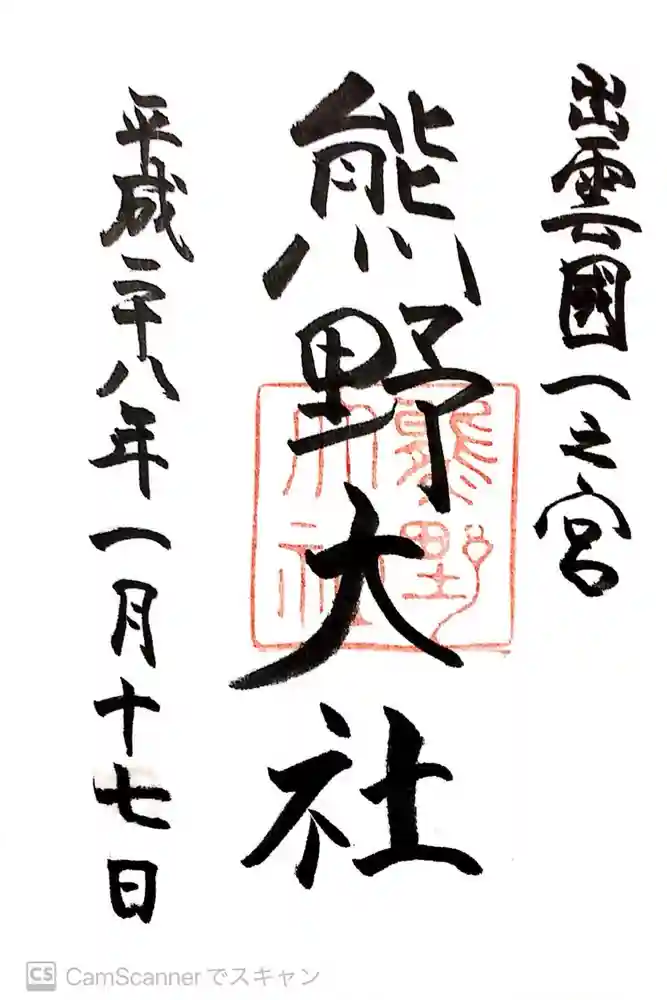 出雲國一之宮
熊野大社
熊野
大社
平成二十八年一月十七日
CS CamScanner でスキャン